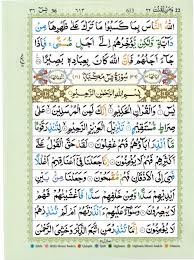 ومن يقنت ٢٢ ٦١٣ يٰسٓ ٣٦
اللّٰهُ النَّاسَ بِمَا كَسَبُوْا مَا تَرَكَ عَلٰى ظَهْرِهَا مِنْ
دَآبَّةٍ وَّلٰكِنْ يُّؤَخِّرُهُمْ اِلٰٓى اَجَلٍ مُّسَمًّى ۚ فَاِذَا
جَآءَ اَجَلُهُمْ فَاِنَّ اللّٰهَ كَانَ بِعِبَادِهٖ بَصِيْرًا
سُوْرَةُ يٰسٓ مَكِّيَّةٌ
بِسْمِ اللّٰهِ الرَّحْمٰنِ الرَّحِيْمِ
يٰسٓ وَالْقُرْاٰنِ الْحَكِيْمِ اِنَّكَ لَمِنَ الْمُرْسَلِيْنَ عَلٰى
صِرَاطٍ مُّسْتَقِيْمٍ تَنْزِيْلَ الْعَزِيْزِ الرَّحِيْمِ لِتُنْذِرَ قَوْمًا
مَّآ اُنْذِرَ اٰبَآؤُهُمْ فَهُمْ غٰفِلُوْنَ لَقَدْ حَقَّ الْقَوْلُ عَلٰٓى
اَكْثَرِهِمْ فَهُمْ لَا يُؤْمِنُوْنَ اِنَّا جَعَلْنَا فِيْٓ اَعْنَاقِهِمْ
اَغْلٰلًا فَهِيَ اِلَى الْاَذْقَانِ فَهُمْ مُّقْمَحُوْنَ وَجَعَلْنَا مِنْۢ بَيْنِ
اَيْدِيْهِمْ سَدًّا وَّمِنْ خَلْفِهِمْ سَدًّا فَاَغْشَيْنٰهُمْ فَهُمْ
لَا يُبْصِرُوْنَ وَسَوَآءٌ عَلَيْهِمْ ءَاَنْذَرْتَهُمْ اَمْ لَمْ تُنْذِرْهُمْ